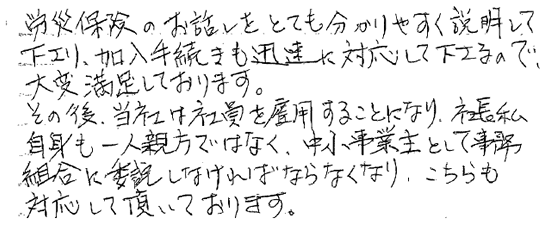 労災保険のお話しをとても分かりやすく説明して
下さり、加入手続きも迅速に対応して下さるので、
大変満足しております。
その後、当社は社員を雇用することになり、社長私
自身も一人親方ではなく、中小事業主として事務
組合に委託しなければならなくなり、こちらも
対応して頂いております。